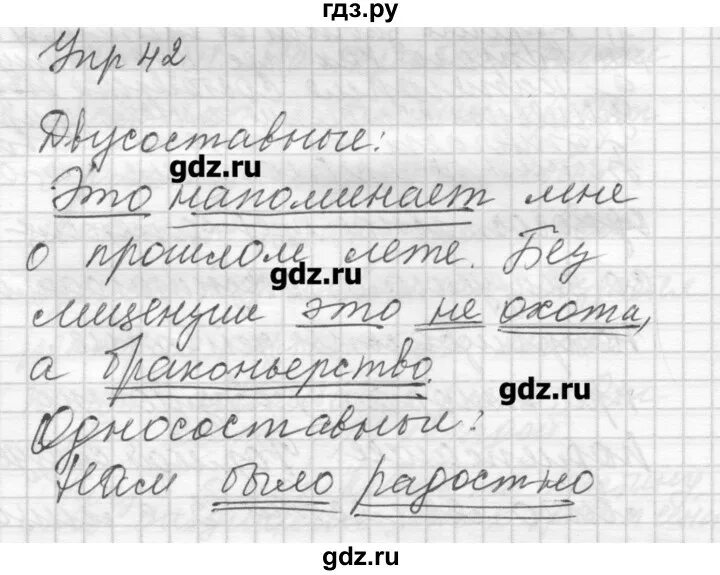 гдз.ру
Упр 42
Двусоставные:
gdz.ru
Это напоминает мне
о прошлом лете. Без
gdz.ru
лицензии это не охота,
а браконьерство.
gdz.ru
Односоставные:
Нам было радостно
gdz.ru